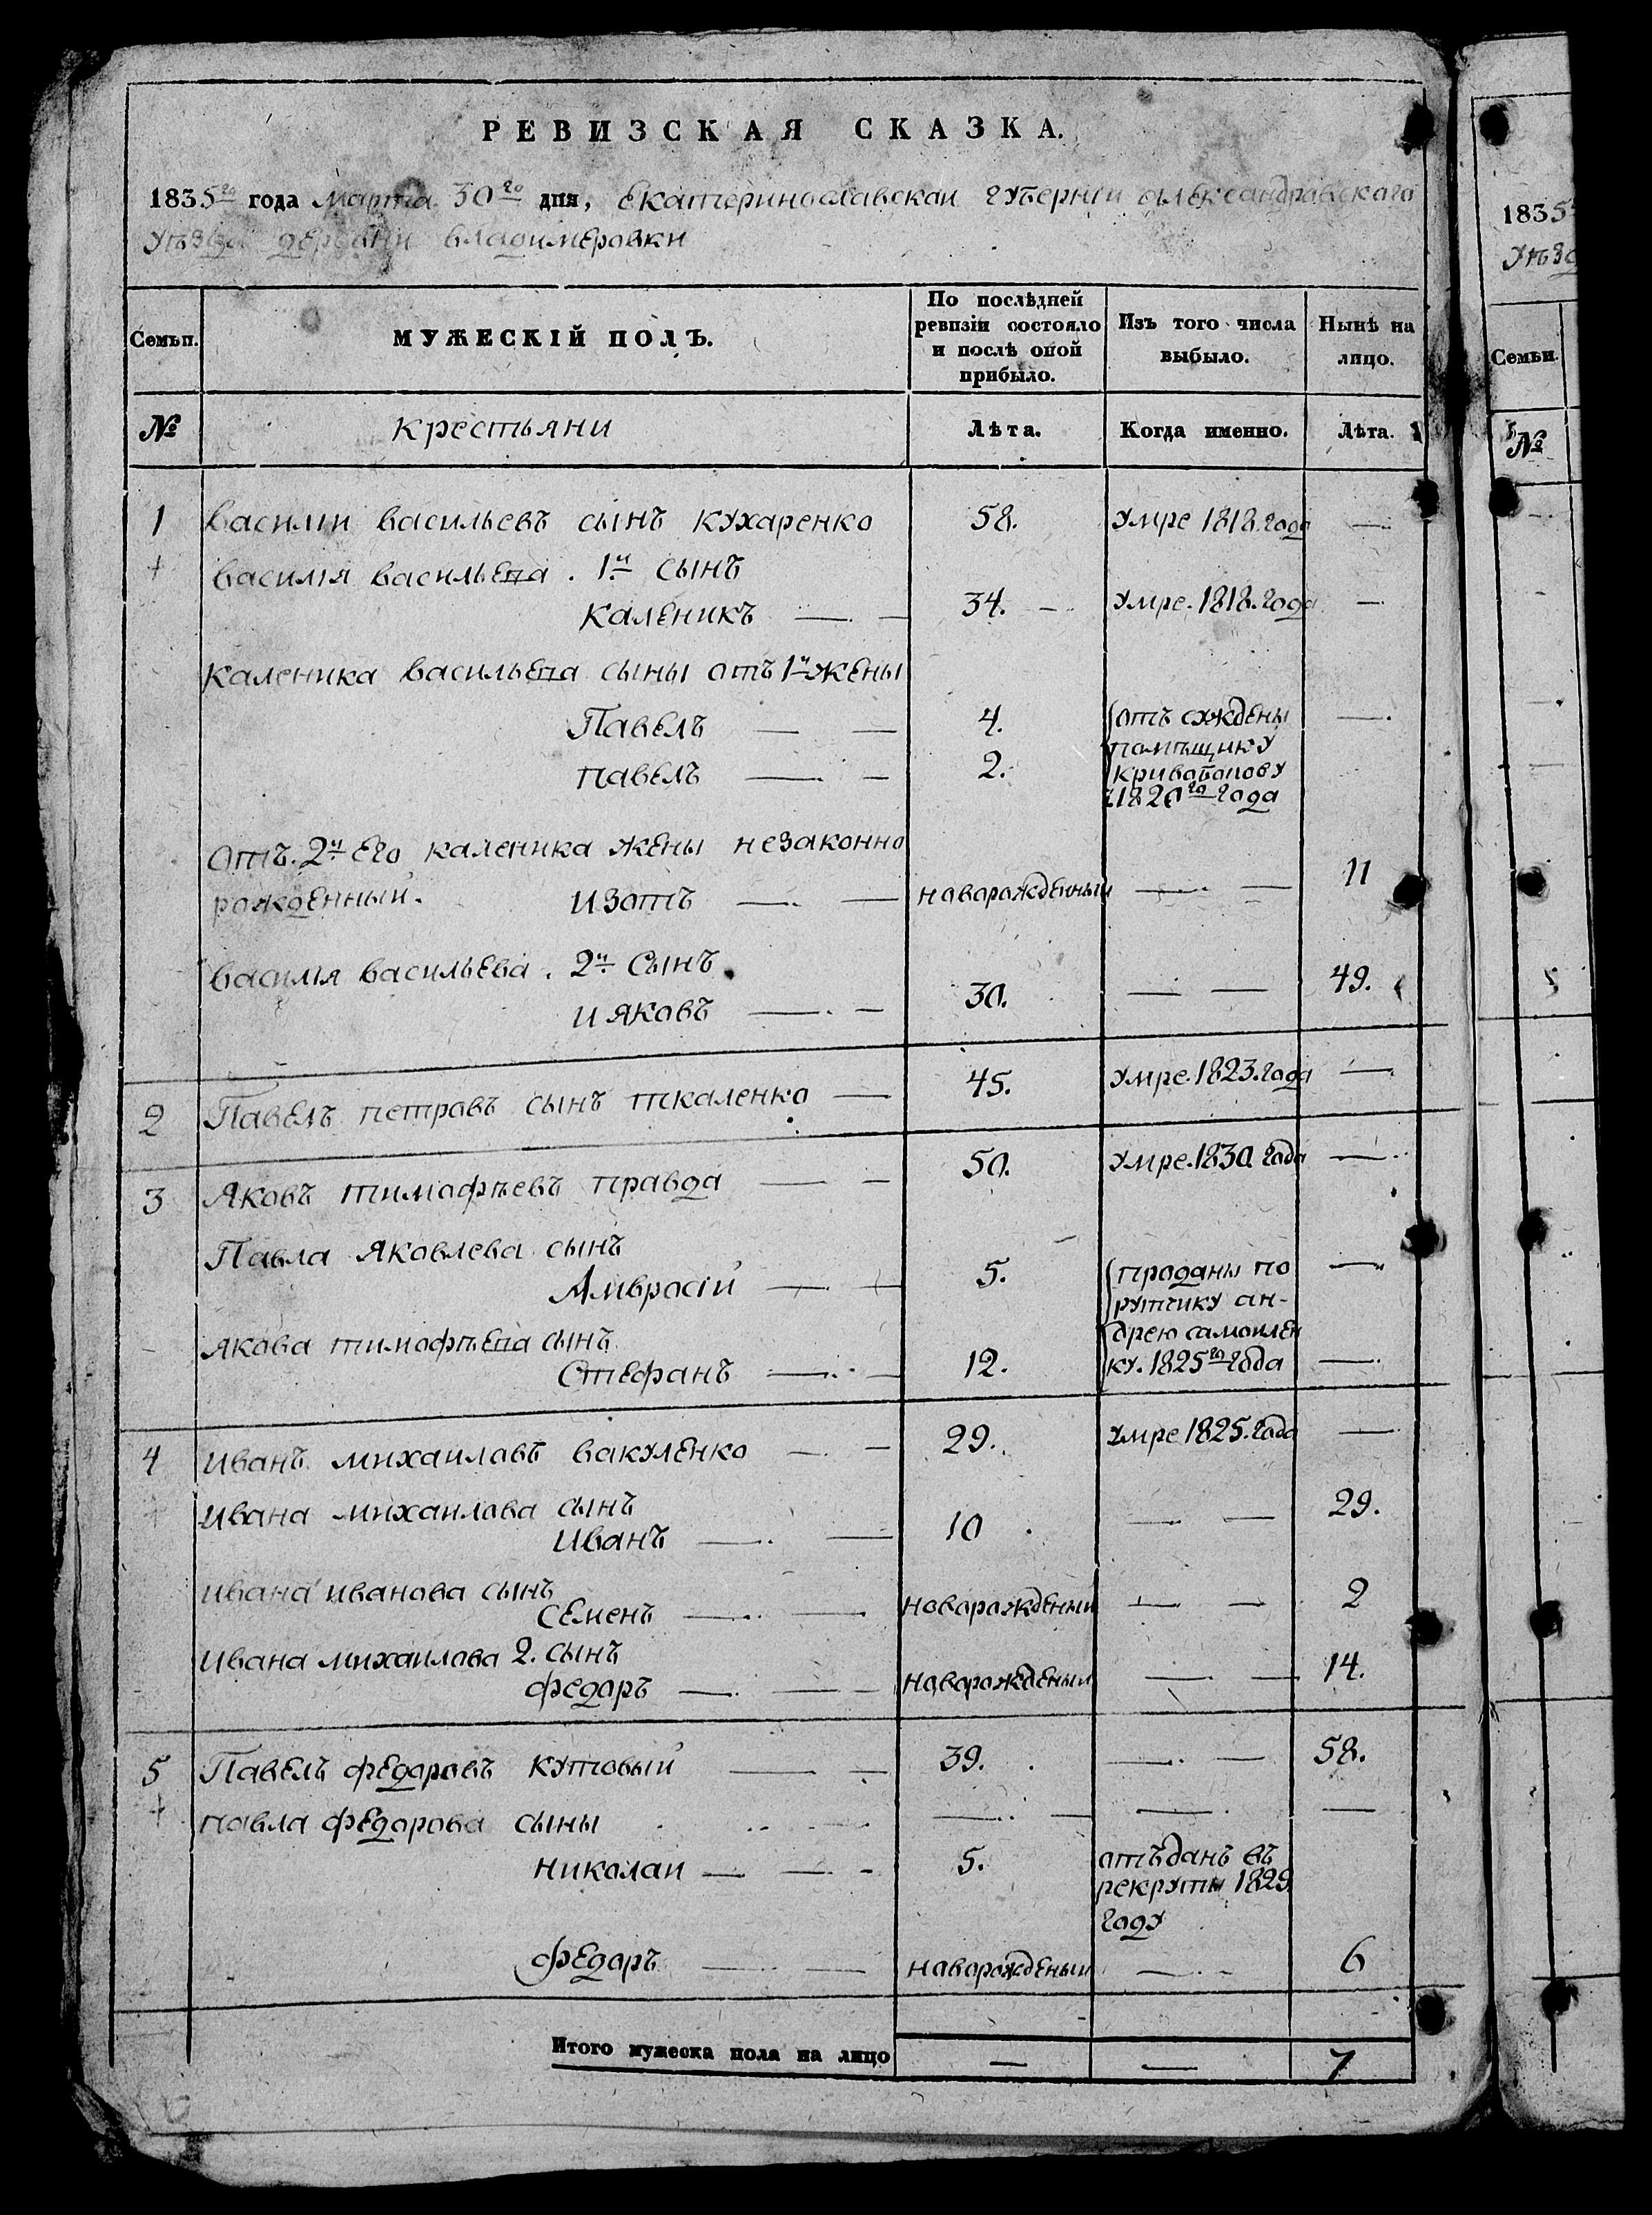 РЕВИЗСКАЯ СКАЗКА.
1835го года марта 30го дня, Екатеринославской губернии Александравскаго
уѣзда деревни владимеровки
Семьи. МУЖЕСКІЙ ПОЛЪ. По послѣдней ревизіи состояло и послѣ оной прибыло. Изъ того числа выбыло. Нынѣ на лицо.
№ крестьяни Лѣта. Когда именно. Лѣта.
1 василии васильевъ сынъ кухаренко 58. умре 1818. года —
василія васильева. 1й сынъ
каленикъ — 34. — умре. 1818. года —
каленика васильева сыны отъ 1й жены
Павелъ — — 4. отъ суждены —
павелъ — — 2. помѣщику
кривобокову
1820го года
отъ. 2й его каленика жены незаконно
рожденный. изотъ — — наворожденный — — 11
василія васильева. 2й сынъ
ияковъ — — 30. — — 49.
2 Павелъ петравъ сынъ ткаленко — 45. умре. 1823. года —
3 Яковъ тимофѣевъ правда — — 50. умре. 1830 года —
Павла Яковлева сынъ
Амвросій — — 5. проданы по —
рутчику ан-
якова тимофѣева сынъ дрею самоилен
Стефанъ — — 12. ку. 1825го года —
4 иванъ михаилавъ вакуленко — — 29. умре 1825. года —
ивана михаилава сынъ
иванъ — — 10 — — 29.
ивана иванова сынъ
семенъ — — новорожденый — — 2
ивана михаилава 2. сынъ
федаръ — — — наворожденый — — 14.
5 Павелъ федаровъ кутовый — — 39. — — 58.
павла федорова сыны — — — — —
николаи — — - 5. отъданъ въ
рекруты 1829
году
федаръ — — наворожденыи — - 6
Итого мужеска пола на лицо — — 7
1835
уѣзд
Семьи.
№